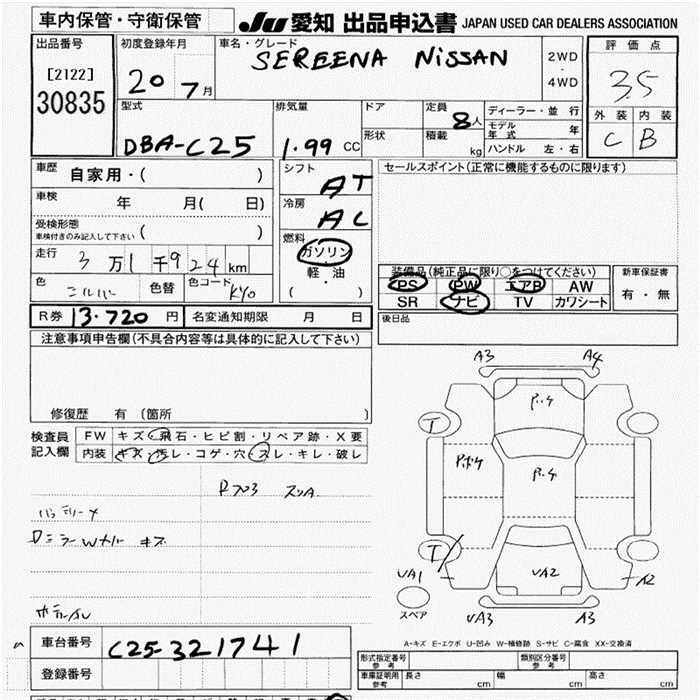 車内保管・守衛保管
JU 愛知 出品申込書 JAPAN USED CAR DEALERS ASSOCIATION
出品番号
[2122]
30835
初度登録年月
20 7月
車名・グレード
SEREENA NiSSAN
2WD
4WD
評価点
3.5
外装 内装
C B
型式
DBA-C25
排気量
1.99 CC
ドア
形状
定員 8人
積載 kg
ディーラー・並行
モデル年式 年
ハンドル 左・右
車歴 自家用・( )
車検 年 月( 日)
受検形態
車検付きのみ記入して下さい ( )
走行 3万1千924km
色 シルバー 色替 色コード KY0
シフト AT
冷房 AC
燃料
ガソリン
軽・油
( )
セールスポイント(正常に機能するものに限ります)
装備品(純正品に限り○をつけてください)
PS PW エアB AW
SR ナビ TV カワシート
新車保証書
有・無
R券 13.720 円 名変通知期限 月 日
後日品
注意事項申告欄(不具合内容等は具体的に記入して下さい)
修復歴 有(箇所 )
検査員
記入欄
FW キズ・飛石・ヒビ割・リペア跡・X要
内装 キズ・汚レ・コゲ・穴・スレ・キレ・破レ
A3 A4
T
T
UA1
UA2
A2
UA3 A3
スペア
A-キズ E-エクボ U-凹み W-補修跡 S-サビ C-腐食 XX-交換済
車台番号 C25-321741
登録番号
形式指定番号 参考
類別区分番号 参考
車庫証明用 参考 長さ cm 幅 cm 高さ cm